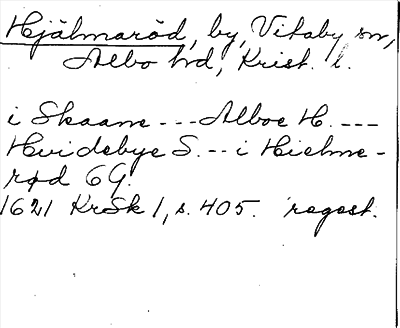 Hjälmaröd, by, Vitaby sn,
Albo hd, Krist. l.
i Skaane --- Alboe H. ---
Hvidebye S. -- i Hielme-
rød 6 G.
1621 KrSk 1, s. 405. regest.